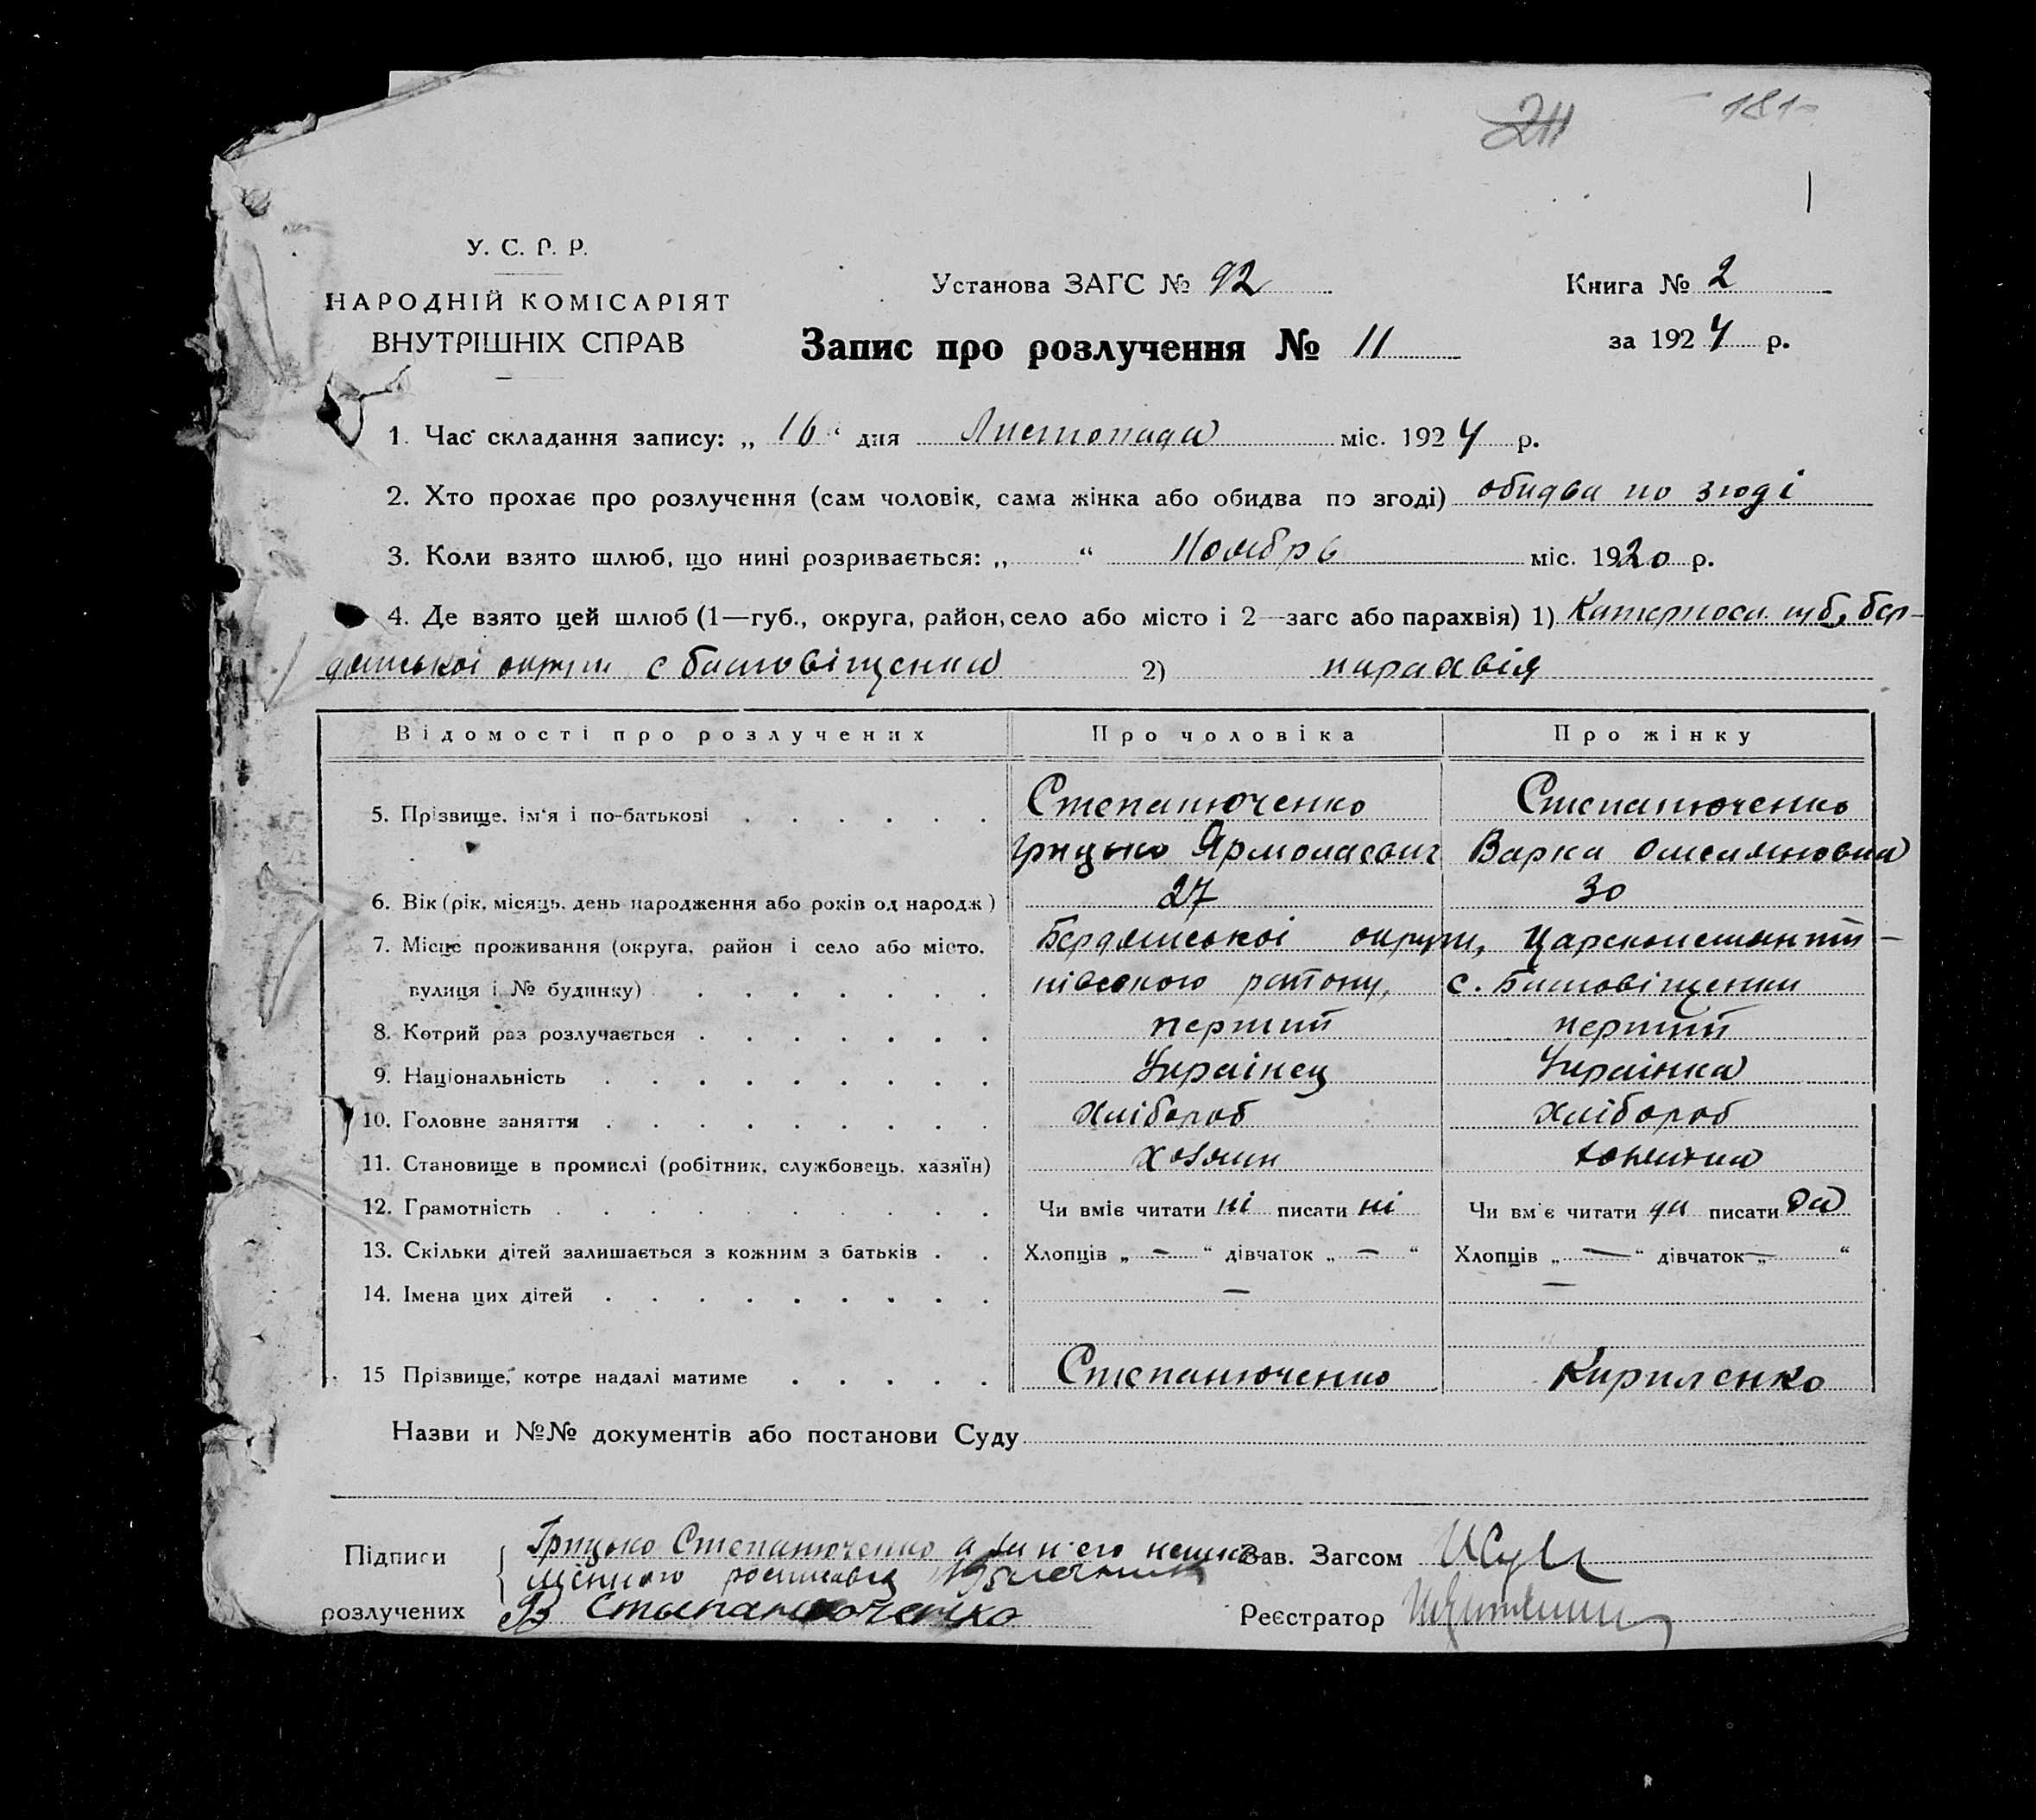 211 181
У. С. Р. Р.
НАРОДНІЙ КОМІСАРІЯТ
ВНУТРІШНІХ СПРАВ
Установа ЗАГС № 92
Книга № 2
Запис про розлучення № 11
за 1924 р.
1. Час складання запису: „ 16 “ дня Листопада міс. 1924 р.
2. Хто прохає про розлучення (сам чоловік, сама жінка або обидва по згоді) обидва по згоді
3. Коли взято шлюб, що нині розривається: „ “ Ноябрь міс. 1920 р.
4. Де взято цей шлюб (1—губ., округа, район, село або місто і 2—загс або парахвія) 1) Катерносл. губ, бер-
дянської округи с благовіщенка 2) парахвія
Відомості про розлучених Про чоловіка Про жінку
5. Прізвище, ім‘я і по-батькові Степанюченко Степанюченко
Грицько Ярмолаєвич Варка
6. Вік (рік, місяць, день народження або років од народж.) 27 30
7. Місце проживання (округа, район і село або місто, Бердянської округи, Царсконстанти-
вулиця і № будинку) нівського району, с. Благовіщенки
8. Котрий раз розлучається перший перший
9. Національність Українец Українка
10. Головне заняття хлібороб хлібороб
11. Становище в промислі (робітник, службовець, хазяїн) хозяин
12. Грамотність Чи вміє читати ні писати ні Чи вміє читати да писати да
13. Скільки дітей залишається з кожним з батьків Хлопців „ — “ дівчаток „ — “ Хлопців „ — “ дівчаток „ — “
14. Імена цих дітей — —
15 Прізвище, котре надалі матиме Степанюченко Кириленко
Назви и №№ документів або постанови Суду
Підписи Грицько Степанюченко а за него
Зав. Загсом
розлучених В Степанюченко
Реєстратор